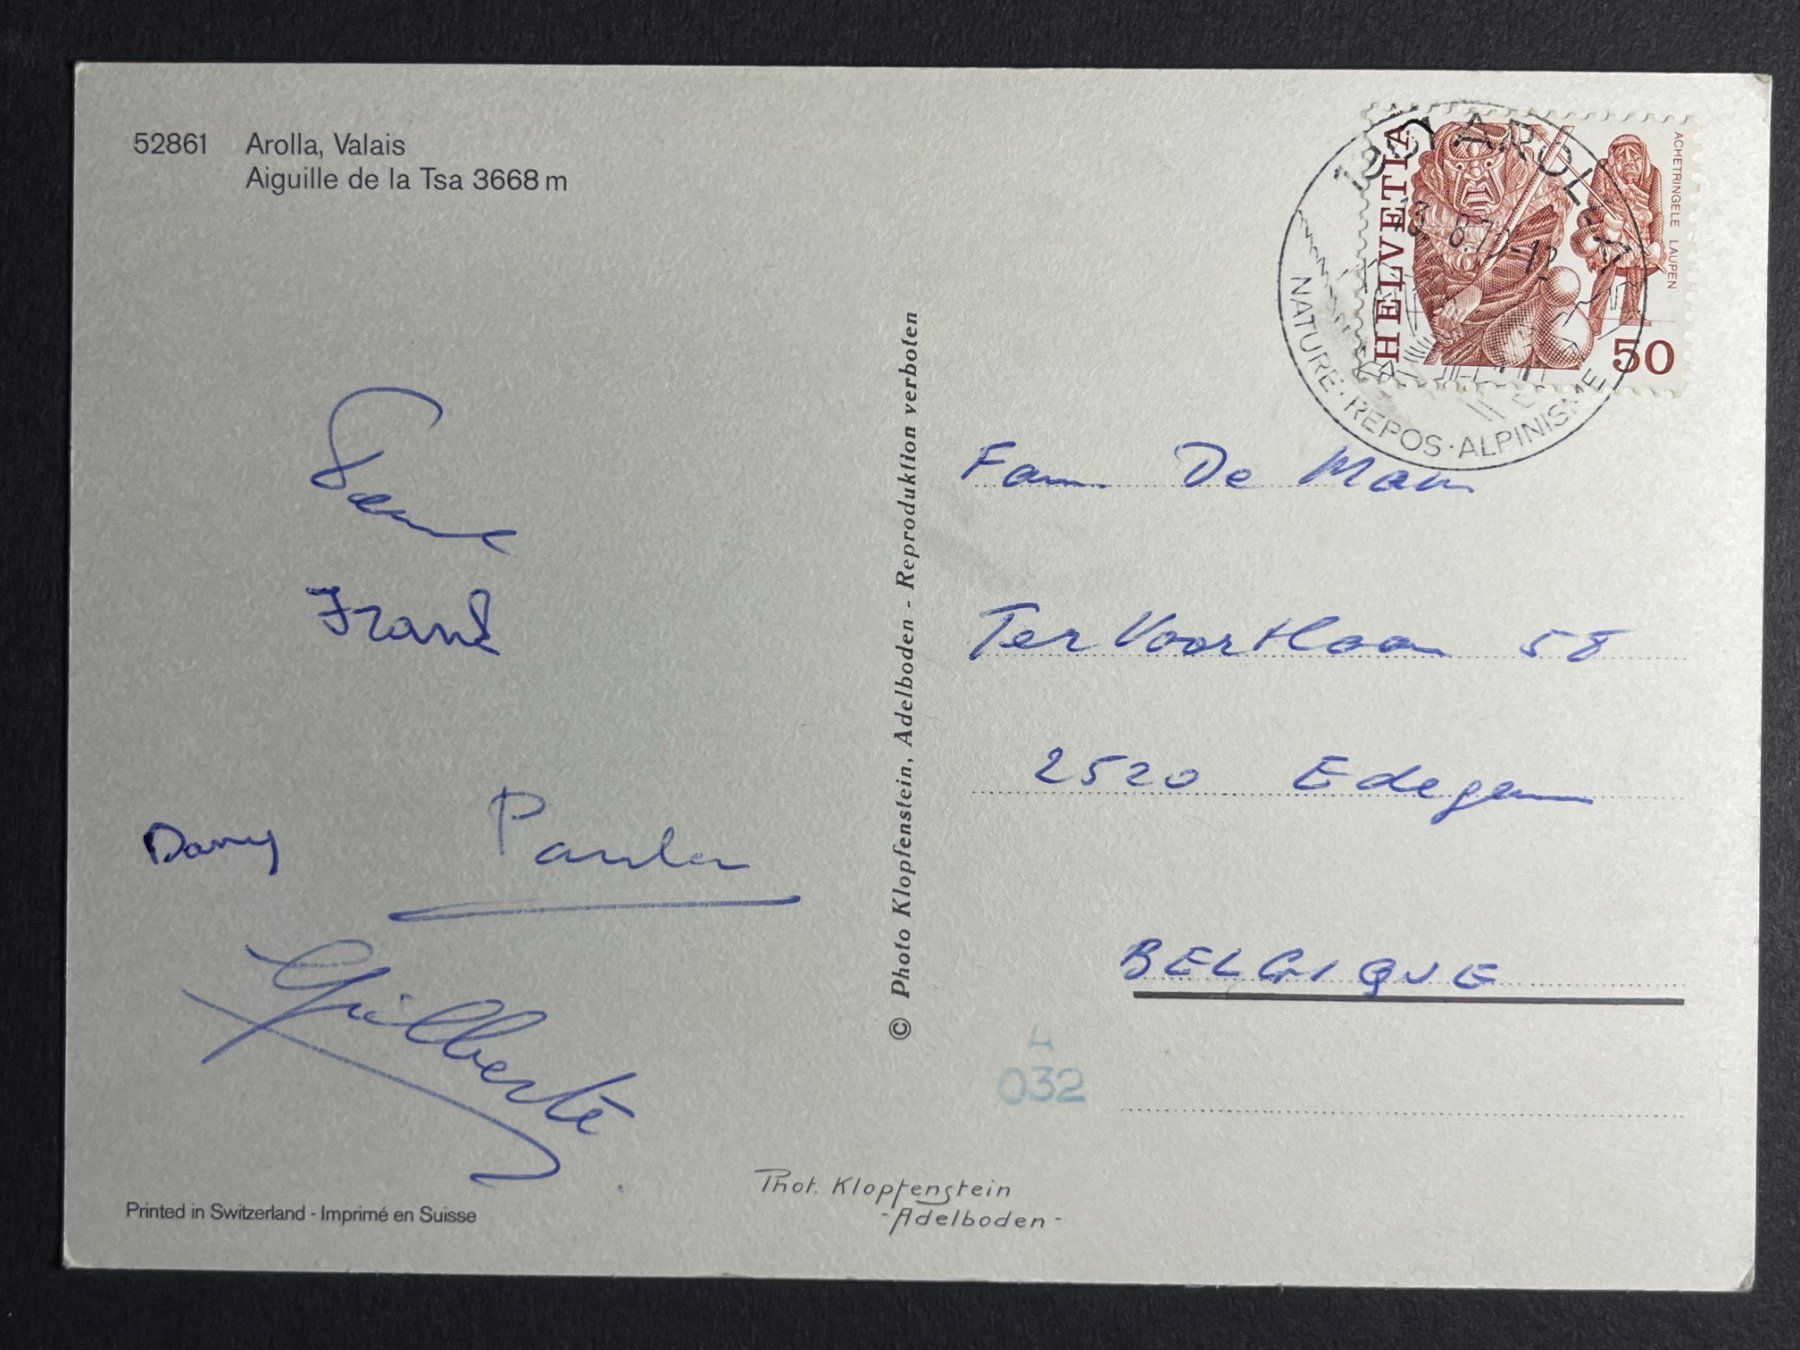 52861 Arolla, Valais
Aiguille de la Tsa 3668 m
Frank
Dany
Paula
Gilberte
Printed in Switzerland - Imprimé en Suisse
© Photo Klopfenstein, Adelboden - Reproduktion verboten
Phot. Klopfenstein
- Adelboden -
HELVETIA
ACHETRINGELE LAUPEN
50
AROLLA
NATURE · REPOS · ALPINISME
Fam. De Man
Ter Voortlaan 58
2520 Edegem
BELGIQUE
L
032